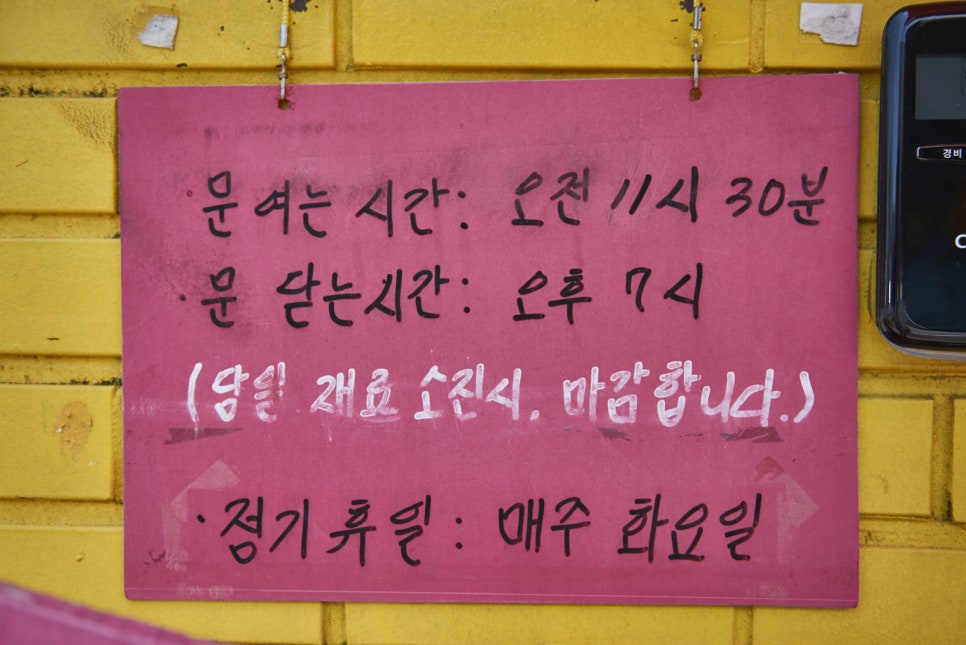 · 문 여는 시간 : 오전 11시 30분
· 문 닫는시간 : 오후 7시
(당일 재료 소진시. 마감합니다.)
· 정기휴일 : 매주 화요일
경비
C